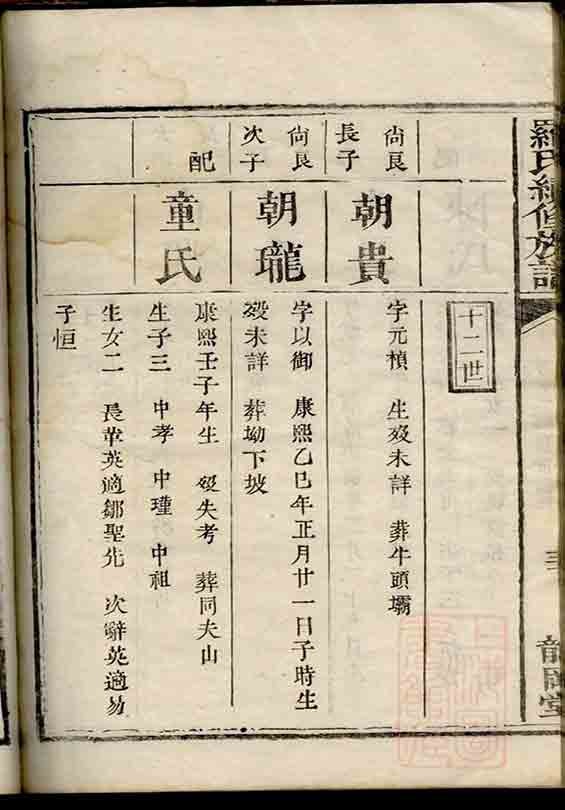 羅氏續修族譜
十二世
尙良
長子
朝貴
字元楨 生歿未詳 葬牛頭壩
尙良
次子
朝瓏
字以御 康熙乙巳年正月廿一日子時生
歿未詳 葬坳下坡
配
童氏
康熙壬子年生 歿失考 葬同夫山
生子三 中孝 中瑾 中祖
生女二 長華英適鄒聖先 次辭英適易
子恒